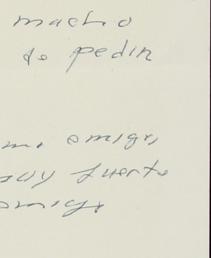 macho
de pedir
mi amigo
soy fuerte
amigo